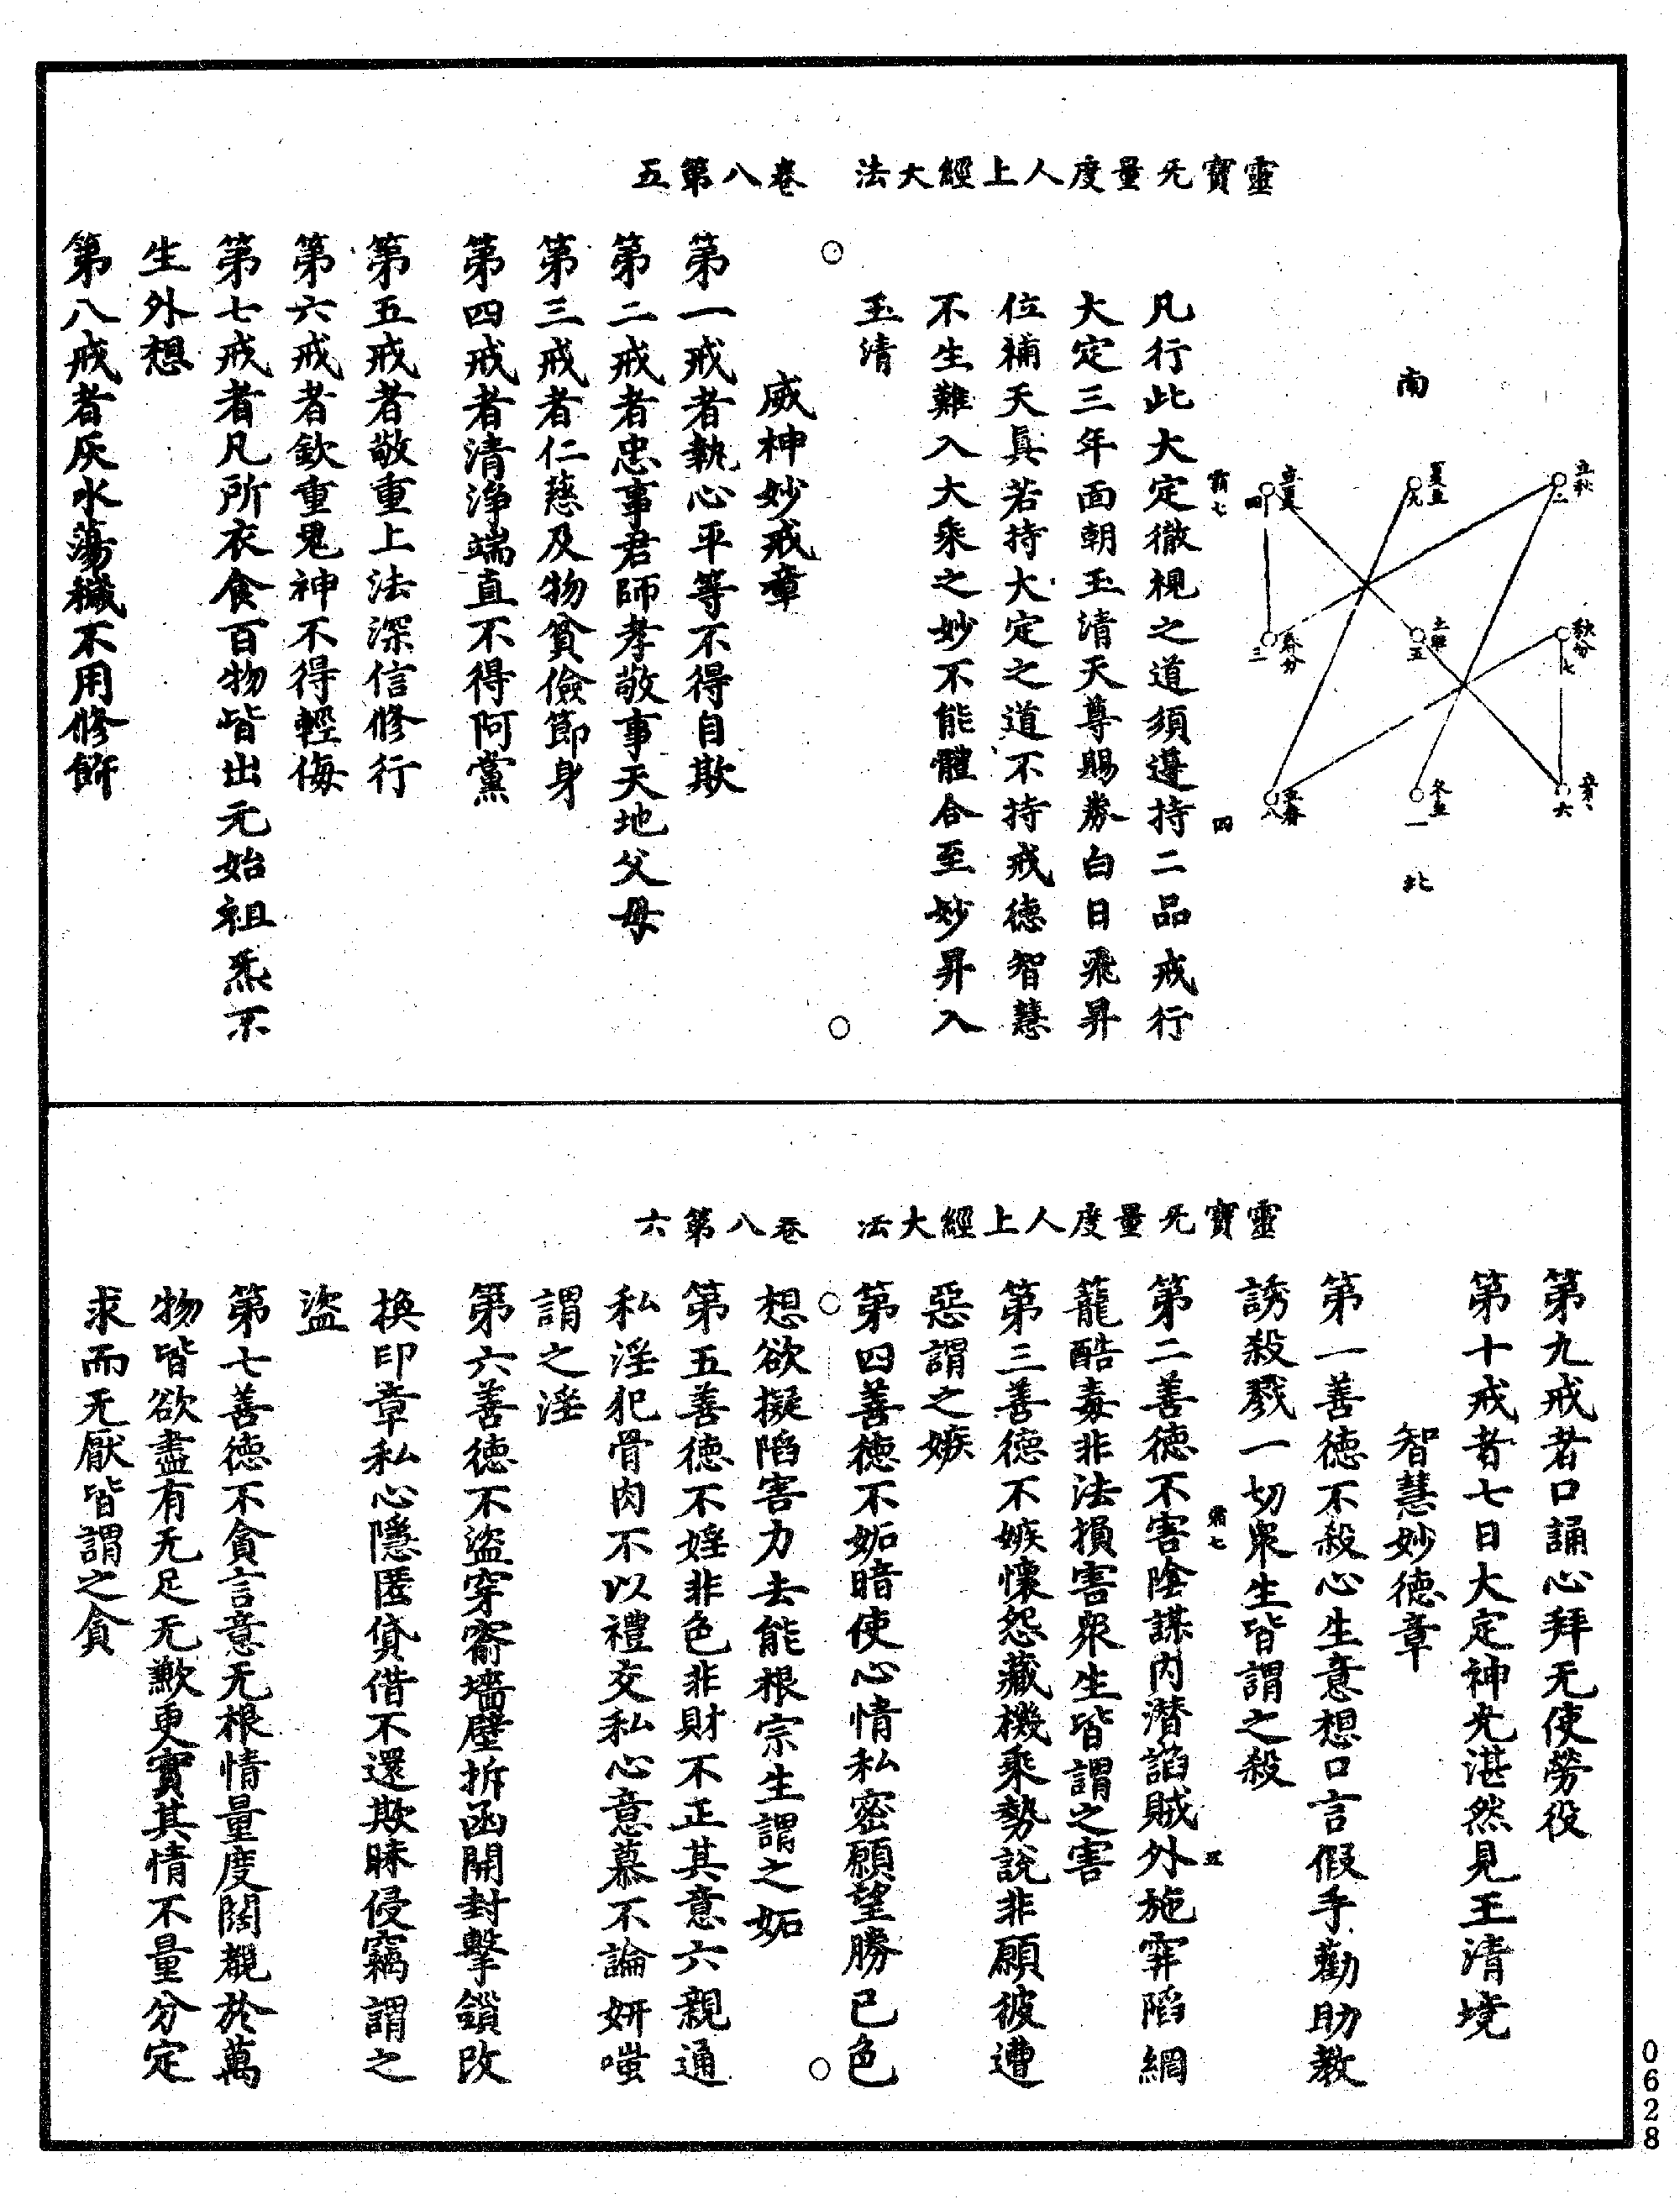 靈寶无量度人上經大法　卷八第五
南
立夏
四
夏至
九
立秋
二
春分
三
土
五
秋分
七
立春
八
冬至
一
六
北
四
凡行此大定徹視之道須遵持二品戒行
大定三年面朝玉清天尊賜券白日飛昇
位補天真若持大定之道不持戒德智慧
不生難入大乘之妙不能體合至妙昇入
玉清
威神妙戒章
第一戒者執心平等不得自欺
第二戒者忠事君師孝敬事天地父母
第三戒者仁慈及物貧儉節身
第四戒者清淨端直不得阿黨
第五戒者敬重上法深信修行
第六戒者欽重鬼神不得輕侮
第七戒者凡所衣食百物皆出元始祖炁不
生外想
第八戒者灰水蕩穢不用修飾
靈寶无量度人上經大法　卷八第六
第九戒者口誦心拜无使勞役
第十戒者七日大定神光湛然見玉清境
智慧妙德章
第一善德不殺心生意想口言假手勸助教
誘殺戮一切眾生皆謂之殺
五
第二善德不害陰謀內潛諂賊外施穽陷網
籠酷毒非法損害眾生皆謂之害
第三善德不嫉懷怨藏機乘勢說非願彼遭
惡謂之嫉
第四善德不妬暗使心情私密願望勝已色
想欲擬陷害力去能根宗生謂之妬
第五善德不婬非色非財不正其意六親通
私淫犯骨肉不以禮交私心意慕不論妍嗤
謂之淫
第六善德不盜穿窬墻壁拆函開封擊鎖改
換印章私心隱匿貸借不還欺昧侵竊謂之
盜
第七善德不貪言意无根情量度闊覩於萬
物皆欲盡有无足无歉更實其情不量分定
求而无厭皆謂之貪
0628